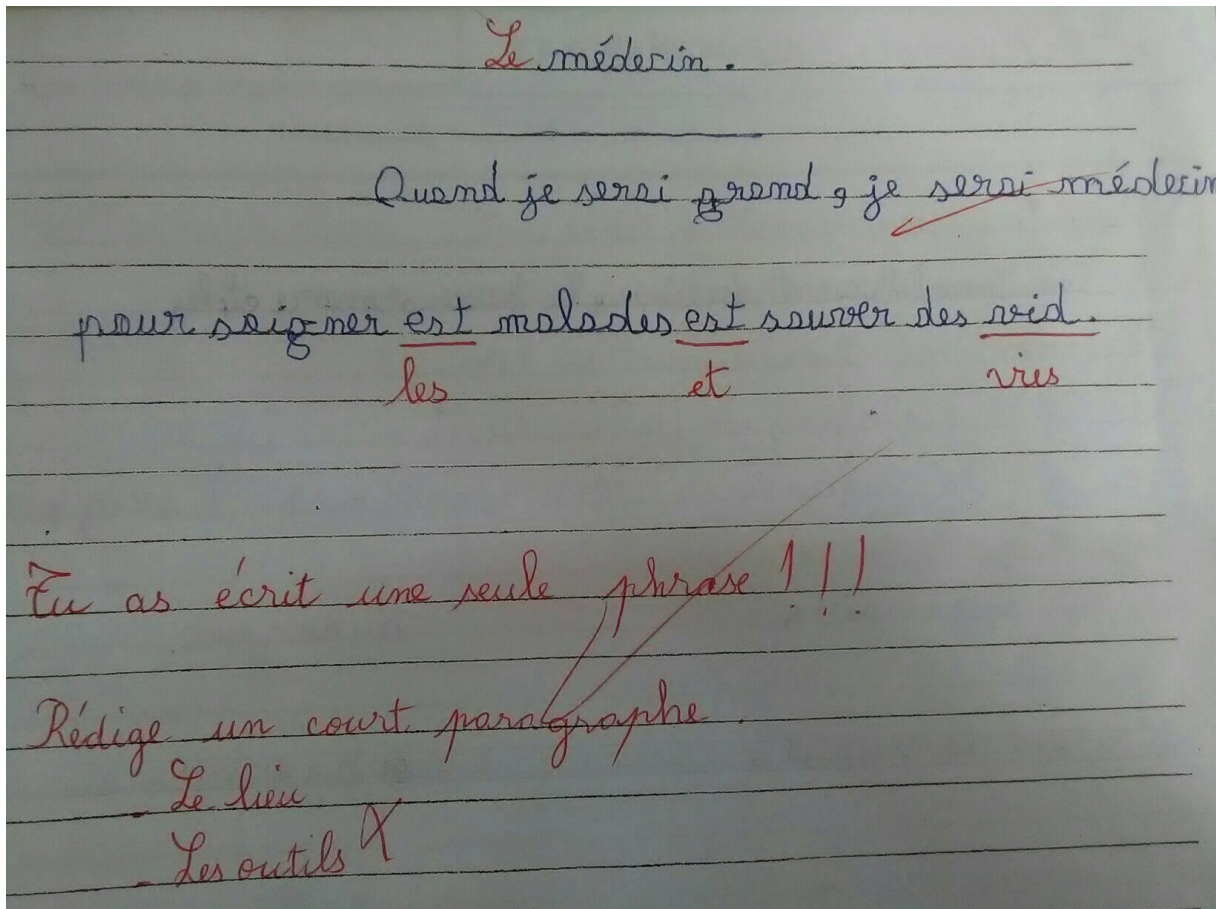 Le médecin.
Quand je serai grand, je serai médecin
pour soigner est malades est sauver des vid.
les et vies
Tu as écrit une seule phrase !!!
Rédige un court paragraphe.
- Le lieu
- Les outils